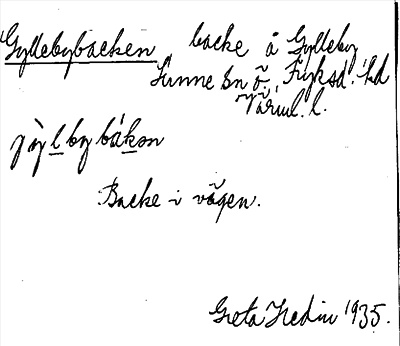 Gyllebybacken backe å Gylleby
Sunne sn Ö. Fryksd. hd
Värml. l.
Backe i vägen.
Greta Hedin 1935.